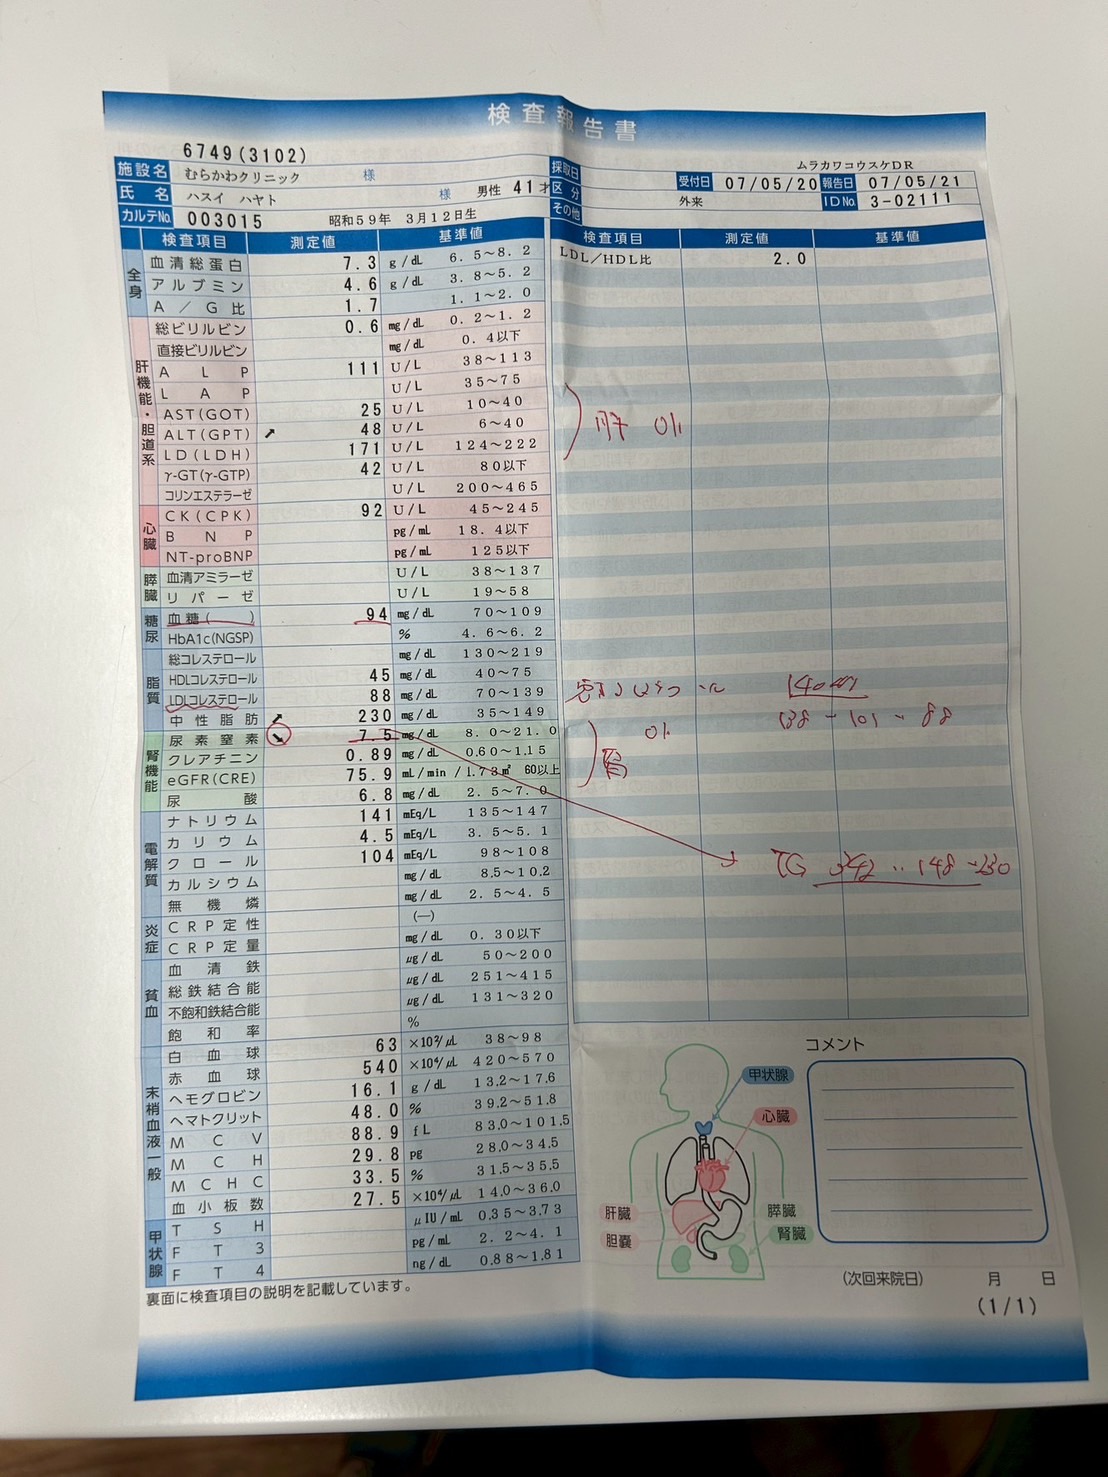 検査報告書
6749(3102)
施設名 むらかわクリニック 様
氏名 ハスイ ハヤト 様 男性 41才
カルテNo. 003015 昭和59年 3月12日生
ムラカワコウスケDR
採取日 受付日 07/05/20 報告日 07/05/21
区分 外来 IDNo. 3-02111
その他
検査項目 測定値 基準値
全身
血清総蛋白 7.3 g/dL 6.5~8.2
アルブミン 4.6 g/dL 3.8~5.2
A/G比 1.7 1.1~2.0
肝機能・胆道系
総ビリルビン 0.6 mg/dL 0.2~1.2
直接ビリルビン mg/dL 0.4以下
ALP 111 U/L 38~113
LAP U/L 35~75
AST(GOT) 25 U/L 10~40
ALT(GPT) ↗ 48 U/L 6~40
LD(LDH) 171 U/L 124~222
γ-GT(γ-GTP) 42 U/L 80以下
コリンエステラーゼ U/L 200~465
心臓
CK(CPK) 92 U/L 45~245
BNP pg/mL 18.4以下
NT-proBNP pg/mL 125以下
膵臓
血清アミラーゼ U/L 38~137
リパーゼ U/L 19~58
糖尿
血糖( ) 94 mg/dL 70~109
HbA1c(NGSP) % 4.6~6.2
脂質
総コレステロール mg/dL 130~219
HDLコレステロール 45 mg/dL 40~75
LDLコレステロール 88 mg/dL 70~139
中性脂肪 ↗ 230 mg/dL 35~149
腎機能
尿素窒素 ↘ 7.5 mg/dL 8.0~21.0
クレアチニン 0.89 mg/dL 0.60~1.15
eGFR(CRE) 75.9 mL/min/1.73㎡ 60以上
尿酸 6.8 mg/dL 2.5~7.0
電解質
ナトリウム 141 mEq/L 135~147
カリウム 4.5 mEq/L 3.5~5.1
クロール 104 mEq/L 98~108
カルシウム mg/dL 8.5~10.2
無機燐 mg/dL 2.5~4.5
炎症
CRP定性 (―)
CRP定量 mg/dL 0.30以下
貧血
血清鉄 μg/dL 50~200
総鉄結合能 μg/dL 251~415
不飽和鉄結合能 μg/dL 131~320
飽和率 %
末梢血液一般
白血球 63 ×10²/μL 38~98
赤血球 540 ×10⁴/μL 420~570
ヘモグロビン 16.1 g/dL 13.2~17.6
ヘマトクリット 48.0 % 39.2~51.8
MCV 88.9 fL 83.0~101.5
MCH 29.8 pg 28.0~34.5
MCHC 33.5 % 31.5~35.5
血小板数 27.5 ×10⁴/μL 14.0~36.0
甲状腺
TSH μIU/mL 0.35~3.73
FT3 pg/mL 2.2~4.1
FT4 ng/dL 0.88~1.81
裏面に検査項目の説明を記載しています。
検査項目 測定値 基準値
LDL/HDL比 2.0
肝 ok
140
138 - 101 - 88
腎 ok
TG 342 .. 148 - 230
コメント
甲状腺
心臓
肝臓
胆嚢
膵臓
腎臓
(次回来院日) 月 日
(1/1)